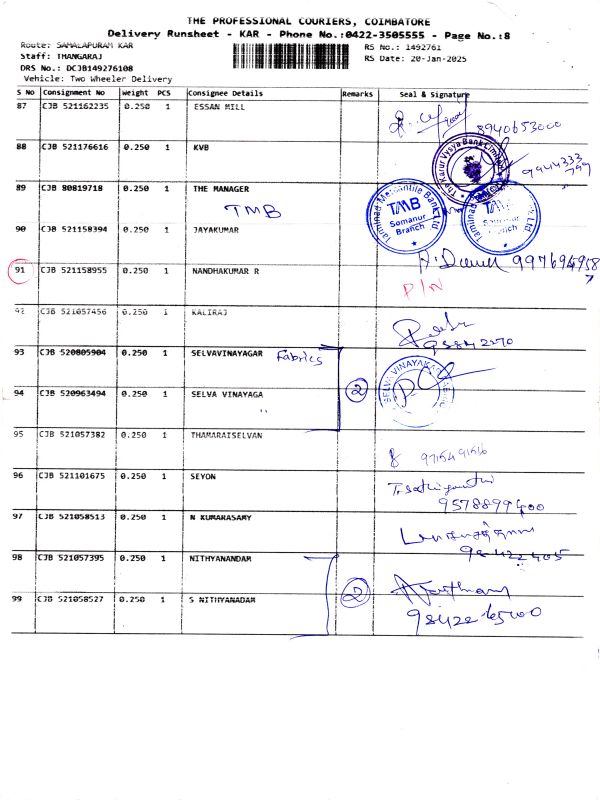 THE PROFESSIONAL COURIERS, COIMBATORE
Delivery Runsheet - KAR - Phone No.:0422-3505555 - Page No.:8
Route: SAMALAPURAM KAR
RS No.: 1492761
Staff: THANGARAJ
RS Date: 20-Jan-2025
DRS No.: DCJB149276108
Vehicle: Two Wheeler Delivery
S No Consignment No Weight PCS Consignee Details Remarks Seal & Signature
87 CJB 521162235 0.250 1 ESSAN MILL
8940653000
88 CJB 521176616 0.250 1 KVB
The Karur Vysya Bank Limited
9944333
799
89 CJB 80819718 0.250 1 THE MANAGER
TMB
Tamilnad Mercantile Bank Ltd
TMB
Somanur
Branch
Tamilnad Mercantile Bank Ltd
Somanur
Branch
90 CJB 521158394 0.250 1 JAYAKUMAR
91 CJB 521158955 0.250 1 NANDHAKUMAR R
997694958
7
P/N
92 CJB 521057456 0.250 1 KALIRAJ
93 CJB 520805904 0.250 1 SELVAVINAYAGAR Fabrics
94 CJB 520963494 0.250 1 SELVA VINAYAGA
"
2
SELVA VINAYAKA
95 CJB 521057382 0.250 1 THAMARAISELVAN
96 CJB 521101675 0.250 1 SEYON
9578899400
97 CJB 521058513 0.250 1 N KUMARASAMY
98 CJB 521057395 0.250 1 NITHYANANDAM
99 CJB 521058527 0.250 1 S NITHYANADAM
2